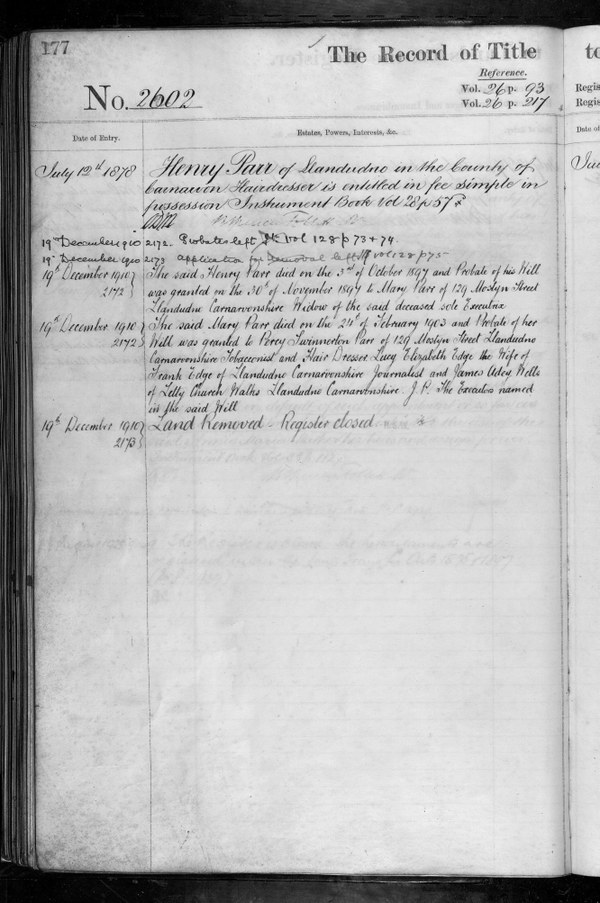 177
The Record of Title
Reference.
No. 2602
Vol. 26 p. 93
Vol. 26 p. 217
Date of Entry.
Estates, Powers, Interests, &c.
July 12th 1878 Henry Parr of Llandudno in the County of
Carnarvon Hairdresser is entitled in fee simple in
possession Instrument Book Vol 28 p 57
19th December 1910 2172. Probates left Vol 128 p 73 + 74.
19th December 1910 2173 application for removal left vol 128 p 75
19th December 1910 The said Henry Parr died on the 3rd of October 1897 and Probate of his Will
2172 was granted on the 30th of November 1897 to Mary Parr of 129 Mostyn Street
Llandudno Carnarvonshire Widow of the said deceased sole Executrix
19th December 1910 The said Mary Parr died on the 21st of February 1903 and Probate of her
2172 Will was granted to Percy Swinnerton Parr of 129 Mostyn Street Llandudno
Carnarvonshire Tobacconist and Hair Dresser Lucy Elizabeth Edge the Wife of
Frank Edge of Llandudno Carnarvonshire Journalist and James Wells
of Church Walks Llandudno Carnarvonshire J.P. The Executors named
in the said Will
19th December 1910 Land removed - Register closed
2173
to
Regis
Regis
Date of